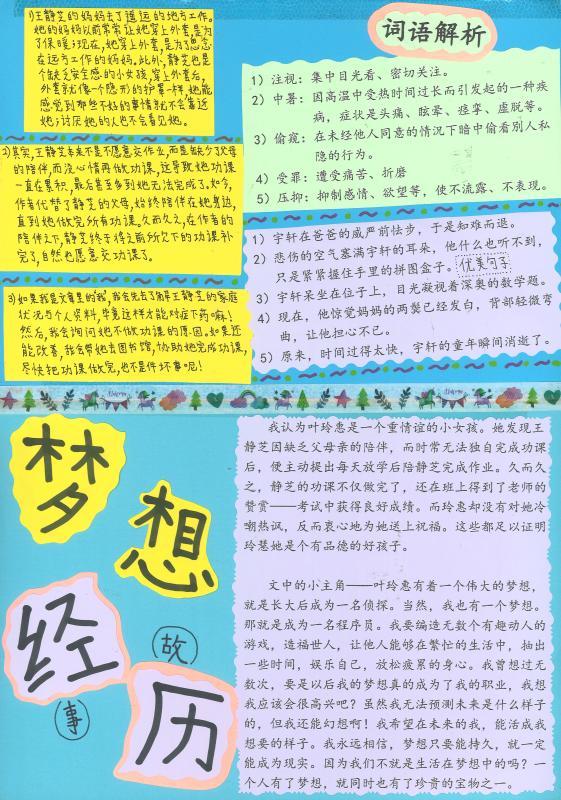 1)王静芝的妈妈去了遥远的地方工作。
她的妈妈以前常常让她穿上外套,是为
了保暖;现在,她穿上外套,是为了思念
在远方工作的妈妈。此外,静芝也是
个缺乏安全感的小女孩,穿上外套后,
外套就像一个隐形的护罩一样,她能
感觉到那些不好的事情就不会靠近
她;讨厌她的人也不会看见她。
2)其实,王静芝本来不是不愿意交作业,而是缺少了父母
的陪伴,而没心情再做功课,这导致她功课
一直在累积,最后甚至多到她无法完成了。如今,
作者代替了静芝的父母,始终陪伴在她身边,
直到她做完所有功课。久而久之,在作者的
陪伴之下,静芝终于将之前所欠下的功课补
完了,自然也愿意交功课了。
3)如果我是文章里的我,我会先去了解王静芝的家庭
状况与个人资料,毕竟这样才能对症下药嘛!
然后,我会询问她不做功课的原因。如果还
能改善,我会带她去图书馆,协助她完成功课,
尽快把功课做完,也不是件坏事呢!
词语解析
1)注视:集中目光看、密切关注。
2)中暑:因高温中受热时间过长而引发起的一种疾
病,症状是头痛、眩晕、痉挛、虚脱等。
3)偷窥:在未经他人同意的情况下暗中偷看别人私
隐的行为。
4)受罪:遭受痛苦、折磨
5)压抑:抑制感情、欲望等,使不流露、不表现。
1)宇轩在爸爸的威严前怯步,于是知难而退。
2)悲伤的空气塞满宇轩的耳朵,他什么也听不到,
只是紧紧握住手里的拼图盒子。
优美句子
3)宇轩呆坐在位子上,目光凝视着深奥的数学题。
4)现在,他惊觉妈妈的两鬓已经发白,背部轻微弯
曲,让他担心不已。
5)原来,时间过得太快,宇轩的童年瞬间消逝了。
梦
想
经
历
故
事
我认为叶玲惠是一个重情谊的小女孩。她发现王
静芝因缺乏父母亲的陪伴,而时常无法独自完成功课
后,便主动提出每天放学后陪静芝完成作业。久而久
之,静芝的功课不仅做完了,还在班上得到了老师的
赞赏——考试中获得良好成绩。而玲惠却没有对她冷
嘲热讽,反而衷心地为她送上祝福。这些都足以证明
玲慧她是个有品德的好孩子。
文中的小主角——叶玲惠有着一个伟大的梦想,
就是长大后成为一名侦探。当然,我也有一个梦想。
那就是成为一名程序员。我要编造无数个有趣动人的
游戏,造福世人,让他人能够在繁忙的生活中,抽出
一些时间,娱乐自己,放松疲累的身心。我曾想过无
数次,要是以后我的梦想真的成为了我的职业,我想
我应该会很高兴吧?虽然我无法预测未来是什么样子
的,但我还能幻想啊!我希望在未来的我,能活成我
想要的样子。我永远相信,梦想只要能持久,就一定
能成为现实。因为我们不就是生活在梦想中的吗?一
个人有了梦想,就同时也有了珍贵的宝物之一。